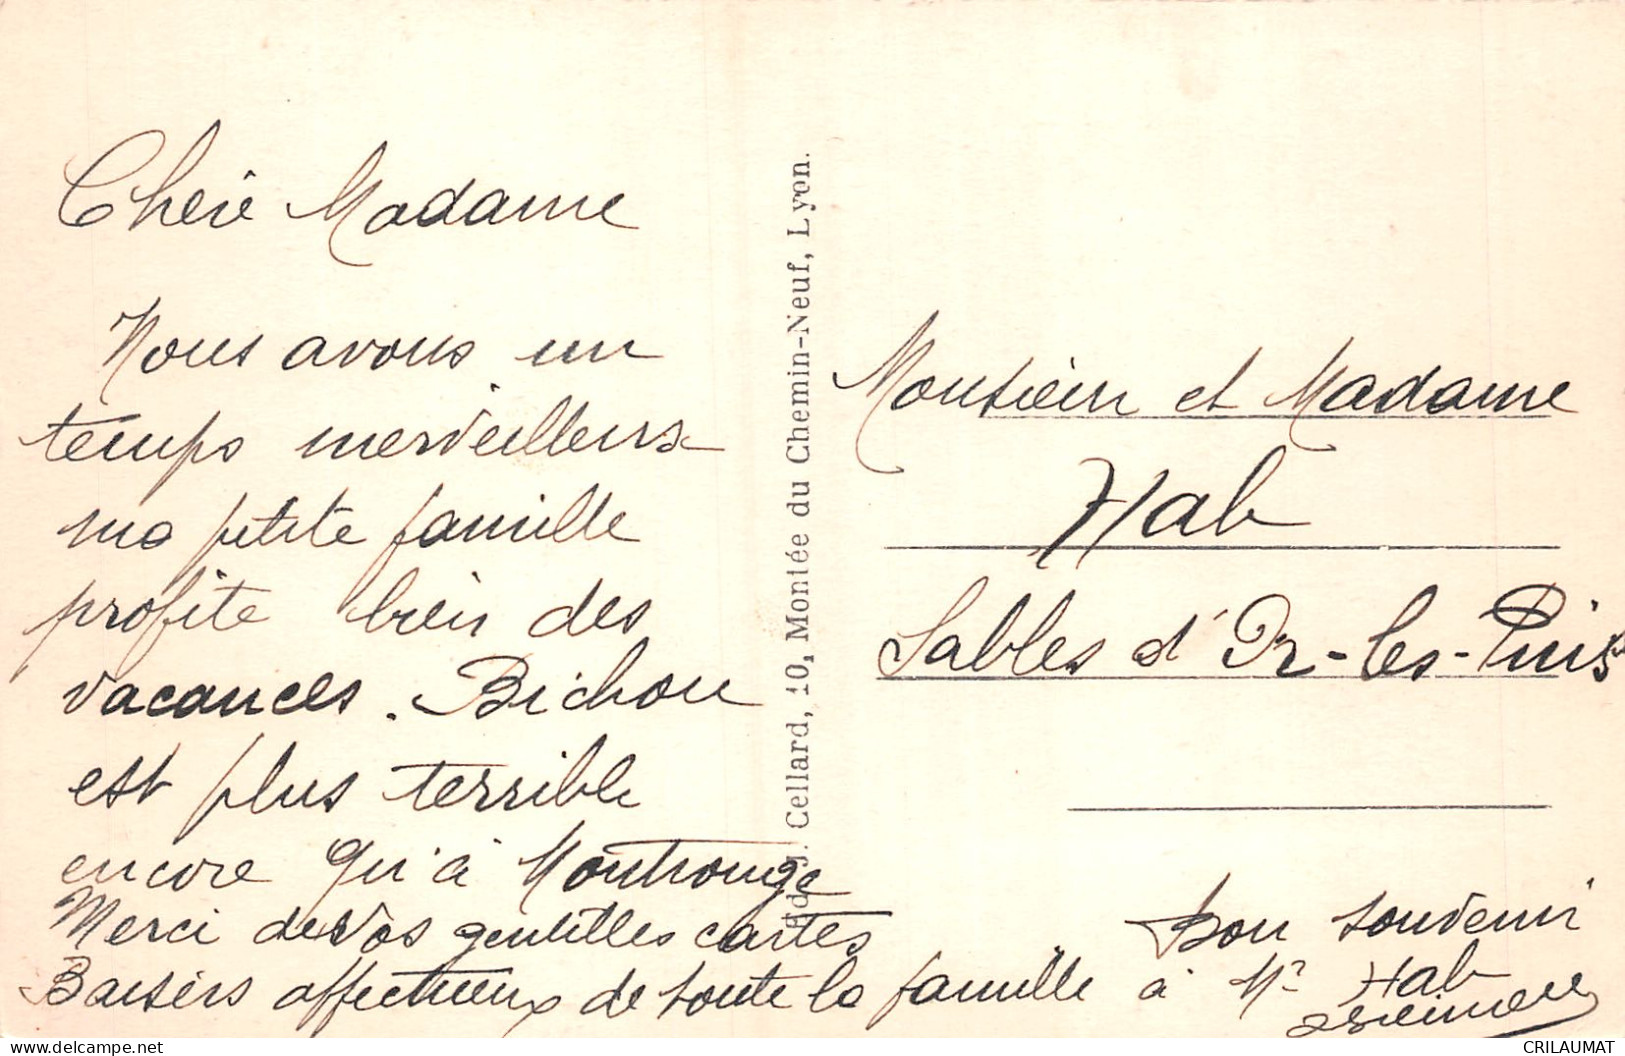 Chère Madame
Nous avons un
temps merveilleux
ma petite famille
profite bien des
vacances. Bichou
est plus terrible
encore qu'à Montrouge
Merci de vos gentilles cartes
Baisers affectueux de toute la famille
Edr J. Cellard, 10, Montée du Chemin-Neuf, Lyon.
Monsieur et Madame
Hab
Sables d'Or-les-Pins
Bon souvenir
à Mr Hab
CRILAUMAT